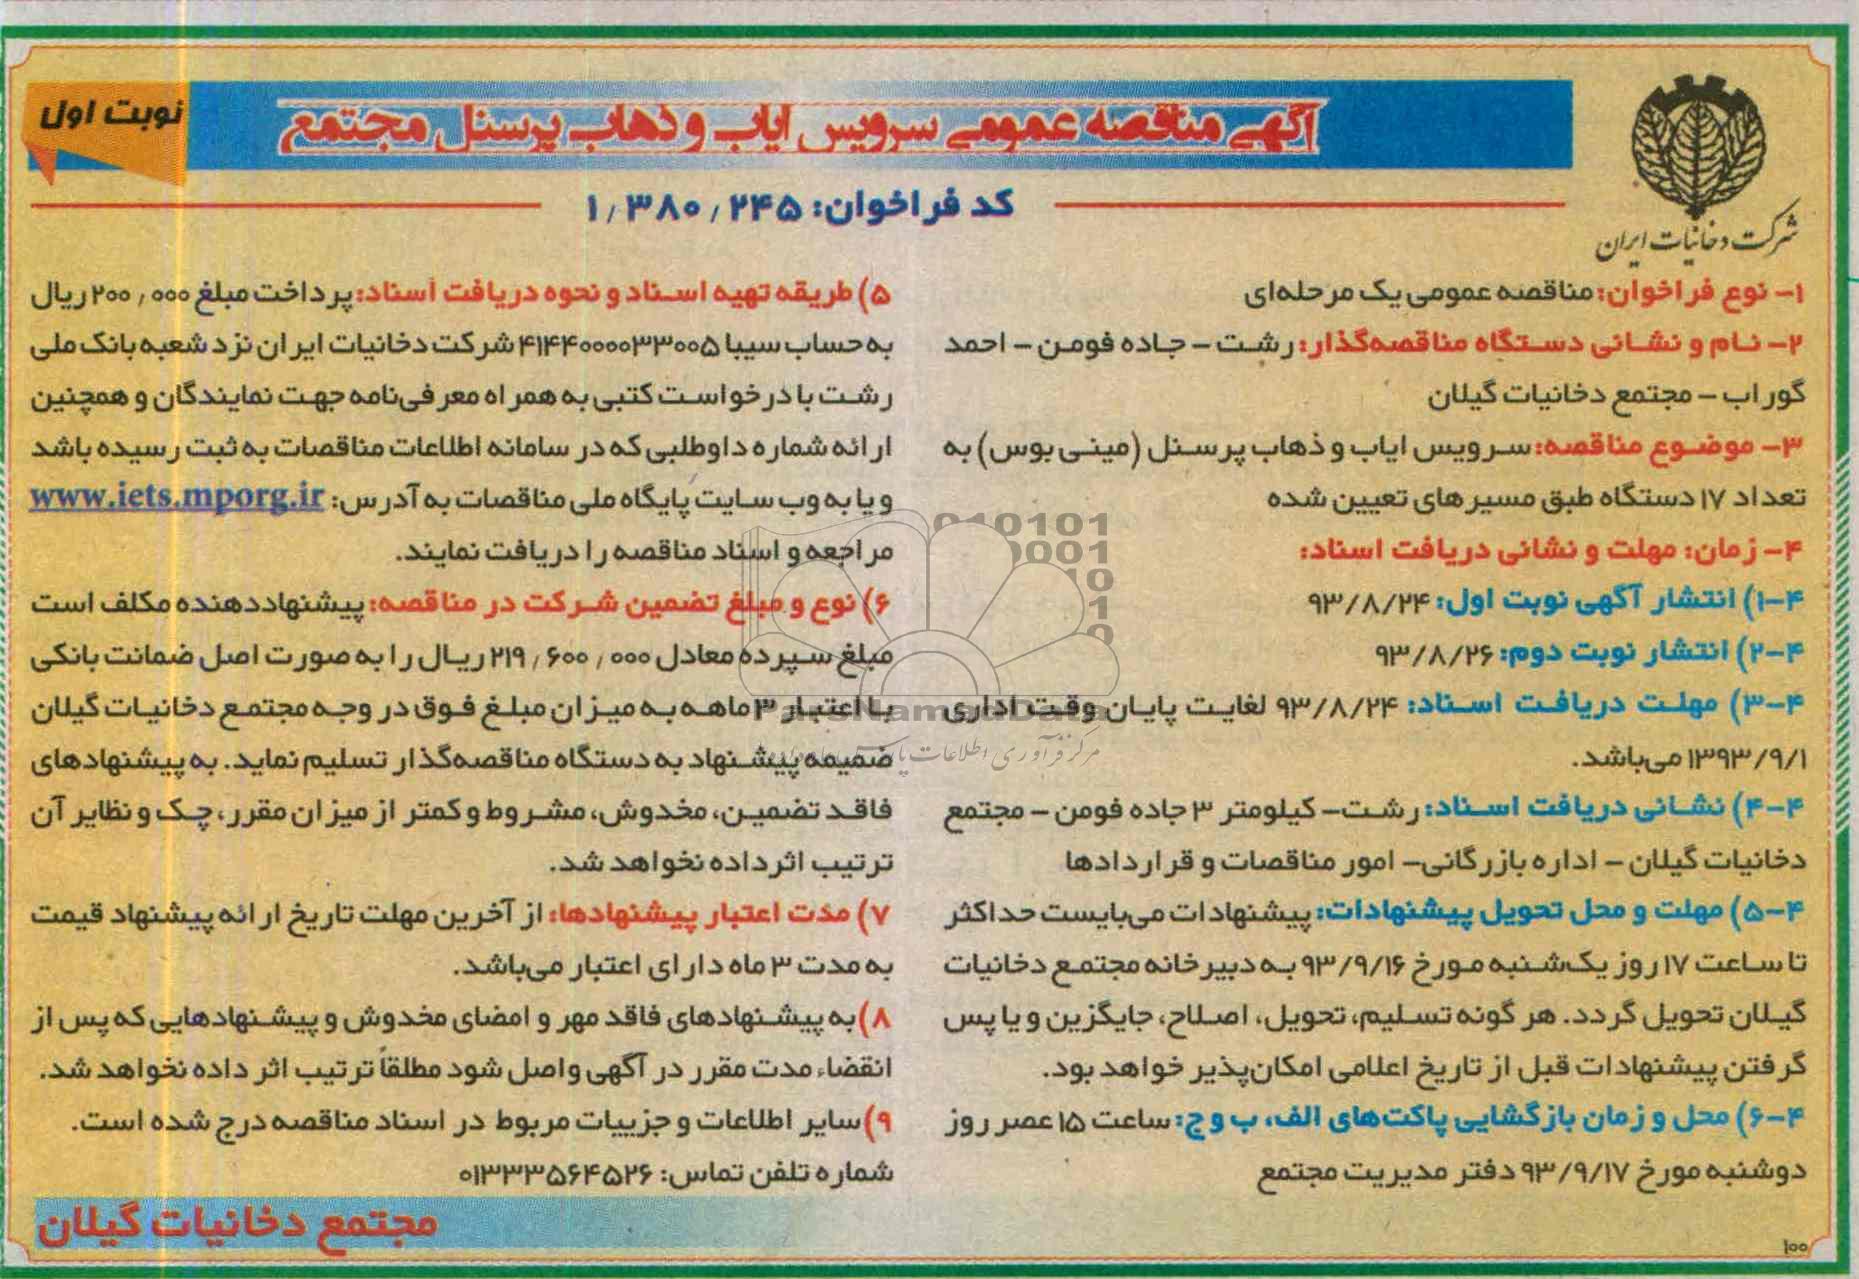 نوبت اول
آگهی مناقصه عمومی سرویس ایاب و ذهاب پرسنل مجتمع
شرکت دخانیات ایران
کد فراخوان: ۱٫۳۸۰٫۲۴۵
۱- نوع فراخوان: مناقصه عمومی یک مرحله‌ای
۲- نام و نشانی دستگاه مناقصه‌گذار: رشت - جاده فومن - احمد
گوراب - مجتمع دخانیات گیلان
۳- موضوع مناقصه: سرویس ایاب و ذهاب پرسنل (مینی بوس) به
تعداد ۱۷ دستگاه طبق مسیرهای تعیین شده
۴- زمان: مهلت و نشانی دریافت اسناد:
۴-۱) انتشار آگهی نوبت اول: ۹۳/۸/۲۴
۴-۲) انتشار نوبت دوم: ۹۳/۸/۲۶
۴-۳) مهلت دریافت اسناد: ۹۳/۸/۲۴ لغایت پایان وقت اداری
۱۳۹۳/۹/۱ می‌باشد.
۴-۴) نشانی دریافت اسناد: رشت- کیلومتر ۳ جاده فومن - مجتمع
دخانیات گیلان - اداره بازرگانی- امور مناقصات و قراردادها
۴-۵) مهلت و محل تحویل پیشنهادات: پیشنهادات می‌بایست حداکثر
تا ساعت ۱۷ روز یک‌شنبه مورخ ۹۳/۹/۱۶ به دبیرخانه مجتمع دخانیات
گیلان تحویل گردد. هر گونه تسلیم، تحویل، اصلاح، جایگزین و یا پس
گرفتن پیشنهادات قبل از تاریخ اعلامی امکان‌پذیر خواهد بود.
۴-۶) محل و زمان بازگشایی پاکت‌های الف، ب و ج: ساعت ۱۵ عصر روز
دوشنبه مورخ ۹۳/۹/۱۷ دفتر مدیریت مجتمع
۵) طریقه تهیه اسناد و نحوه دریافت اسناد: پرداخت مبلغ ۲۰۰٫۰۰۰ ریال
به حساب سیبا ۴۱۴۴۰۰۰۰۳۳۰۰۵ شرکت دخانیات ایران نزد شعبه بانک ملی
رشت با درخواست کتبی به همراه معرفی‌نامه جهت نمایندگان و همچنین
ارائه شماره داوطلبی که در سامانه اطلاعات مناقصات به ثبت رسیده باشد
و یا به وب سایت پایگاه ملی مناقصات به آدرس: www.iets.mporg.ir
مراجعه و اسناد مناقصه را دریافت نمایند.
۶) نوع و مبلغ تضمین شرکت در مناقصه: پیشنهاددهنده مکلف است
مبلغ سپرده معادل ۲۱۹٫۶۰۰٫۰۰۰ ریال را به صورت اصل ضمانت بانکی
با اعتبار ۳ ماهه به میزان مبلغ فوق در وجه مجتمع دخانیات گیلان
ضمیمه پیشنهاد به دستگاه مناقصه‌گذار تسلیم نماید. به پیشنهادهای
فاقد تضمین، مخدوش، مشروط و کمتر از میزان مقرر، چک و نظایر آن
ترتیب اثر داده نخواهد شد.
۷) مدت اعتبار پیشنهادها: از آخرین مهلت تاریخ ارائه پیشنهاد قیمت
به مدت ۳ ماه دارای اعتبار می‌باشد.
۸) به پیشنهادهای فاقد مهر و امضای مخدوش و پیشنهادهایی که پس از
انقضاء مدت مقرر در آگهی واصل شود مطلقاً ترتیب اثر داده نخواهد شد.
۹) سایر اطلاعات و جزییات مربوط در اسناد مناقصه درج شده است.
شماره تلفن تماس: ۰۱۳۳۳۵۶۴۵۲۶
مجتمع دخانیات گیلان
۱۰۰
ParsNamadData
مرکز فرآوری اطلاعات